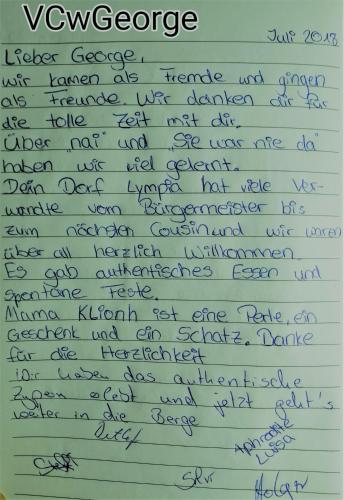 VCwGeorge
Juli 2018
Lieber George,
wir kamen als Fremde und gingen
als Freunde. Wir danken dir für
die tolle Zeit mit dir.
Über „nai" und „Sie war nie da"
haben wir viel gelernt.
Dein Dorf Lympia hat viele Ver-
wandte vom Bürgermeister bis
zum nächsten Cousin und wir waren
überall herzlich Willkommen.
Es gab authentisches Essen und
spontane Feste.
Mama Klionh ist eine Perle, ein
Geschenk und ein Schatz. Danke
für die Herzlichkeit
wir haben das authentische
Zypern erlebt und jetzt geht's
weiter in die Berge
Detlef
Aphrodite
Luisa
Holger